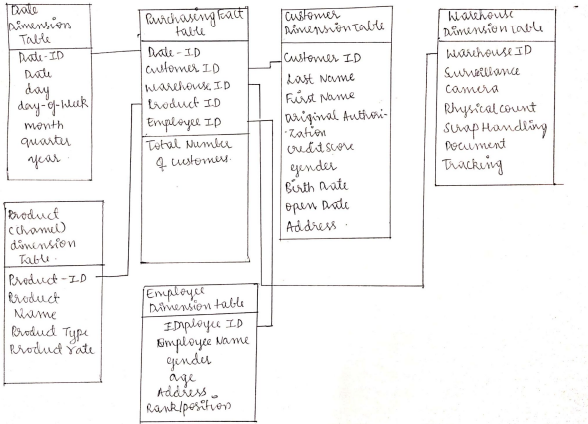 Date
Dimension
Table
Date-ID
Date
day
day-of-Week
month
quarter
year
Purchasing Fact
table
Date-ID
Customer ID
Warehouse ID
Product ID
Employee ID
Total Number
of customers
Customer
Dimension table
Customer ID
Last Name
First Name
Original Authori-
zation
Credit Score
gender
Birth Date
Open Date
Address
Warehouse
Dimension table
Warehouse ID
Surveillance
Camera
Physical count
Scrap Handling
Document
Tracking
Product
(channel)
dimension
Table
Product-ID
Product
Name
Product Type
Product rate
Employee
Dimension table
Employee ID
Employee Name
gender
age
Address
Rank/position